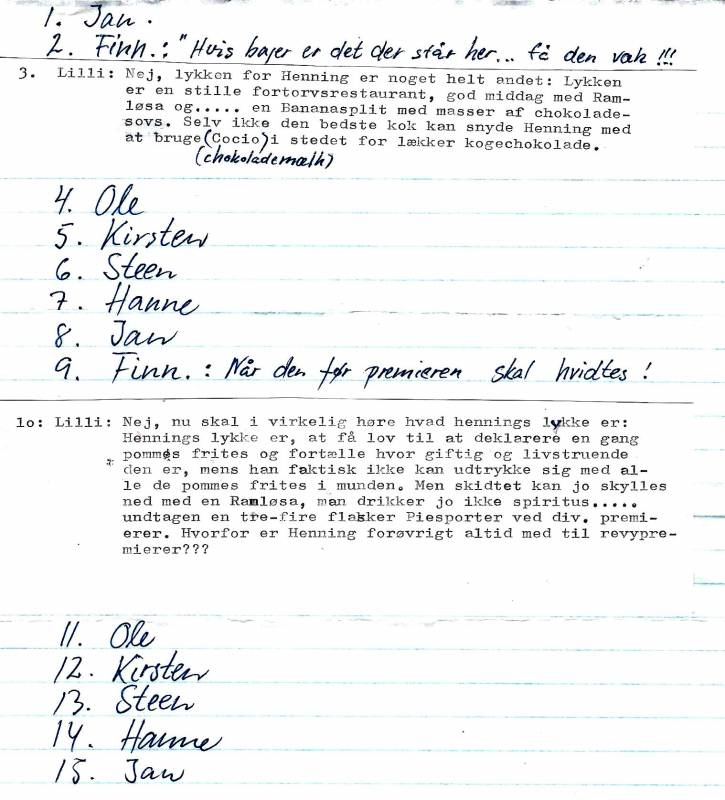 1. Jan.
2. Finn.: "Hvis bajer er det der står her... få den væk !!!
3. Lilli: Nej, lykken for Henning er noget helt andet: Lykken
er en stille fortorvsrestaurant, god middag med Ram-
løsa og..... en Bananasplit med masser af chokolade-
sovs. Selv ikke den bedste kok kan snyde Henning med
at bruge(Cocio)i stedet for lækker kogechokolade.
(chokolademælk)
4. Ole
5. Kirsten
6. Steen
7. Hanne
8. Jan
9. Finn.: Når den før premieren skal hvidtes!
1o: Lilli: Nej, nu skal i virkelig høre hvad hennings lykke er:
Hennings lykke er, at få lov til at deklarere en gang
pommes frites og fortælle hvor giftig og livstruende
den er, mens han faktisk ikke kan udtrykke sig med al-
le de pommes frites i munden. Men skidtet kan jo skylles
ned med en Ramløsa, man drikker jo ikke spiritus.....
undtagen en tre-fire flasker Piesporter ved div. premi-
erer. Hvorfor er Henning forøvrigt altid med til revypre-
mierer???
11. Ole
12. Kirsten
13. Steen
14. Hanne
15. Jan